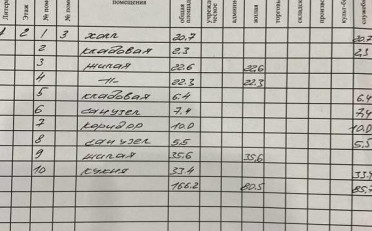 Литера Этаж № пом № пом помещения общая площадь учрежден ческое админи жилая торгов складск произво культ-бы служебн
2 1 3 холл 20.7 20.7
2 кладовая 2.3 2.3
3 жилая 22.6 22.6
4 -"- 22.3 22.3
5 кладовая 6.4 6.4
6 санузел 7.4 7.4
7 коридор 10.0 10.0
8 санузел 5.5 5.5
9 жилая 35.6 35.6
10 кухня 33.4 33.4
166.2 80.5 85.7